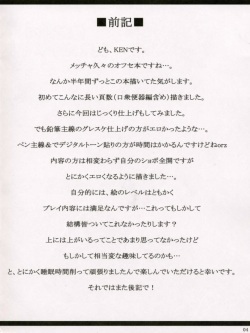 ■前記■
ども、KENです。
メッチャ久々のオフセ本ですね…。
なんか半年間ずっとこの本描いてた気がします。
初めてこんなに長い頁数（口衆便器編含め）描きました。
さらに今回はじっくり仕上げもしてみました。
でも鉛筆主線のグレスケ仕上げの方がエロかったような…。
ペン主線＆でデジタルトーン貼りの方が時間はかかるんですけどねorz
内容の方は相変わらず自分のショボ全開ですが
とにかくエロくなるように描きました…。
自分的には、絵のレベルはともかく
プレイ内容には満足なんですが…これってもしかして
結構皆ついてこれなかったりします？
上には上がいるってことであまり思ってなかったけど
もしかして相当変な趣味してるのかも…
と、とにかく睡眠時間削って頑張りましたんで楽しんでいただけると幸いです。
それではまた後記で！
04